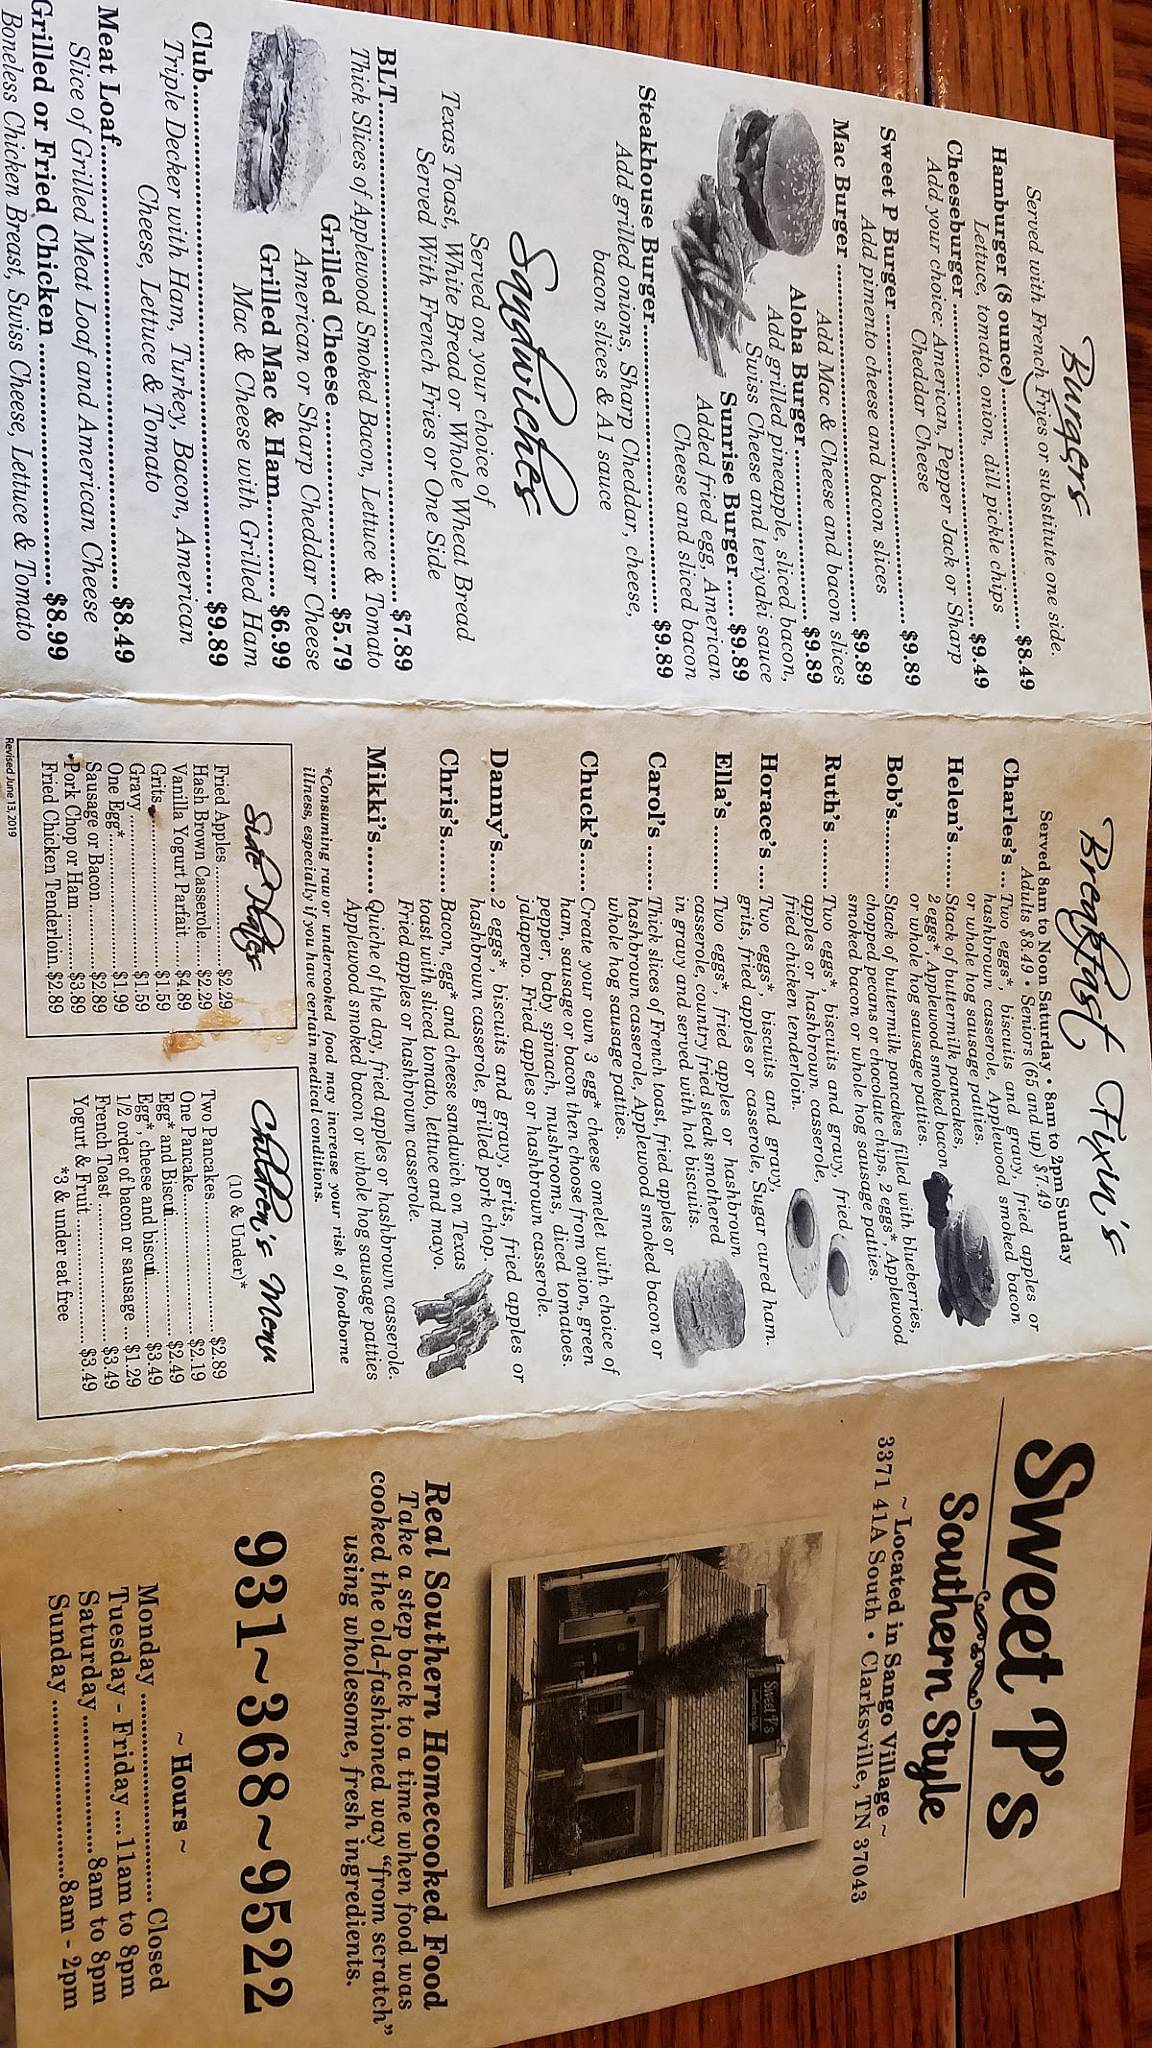 Burgers
Served with French Fries or substitute one side.
Hamburger (8 ounce)........................ $8.49
Lettuce, tomato, onion, dill pickle chips
Cheeseburger ........................ $9.49
Add your choice: American, Pepper Jack or Sharp
Cheddar Cheese
Sweet P Burger........................ $9.89
Add pimento cheese and bacon slices
Mac Burger ........................ $9.89
Add Mac & Cheese and bacon slices
Aloha Burger........................ $9.89
Add grilled pineapple, sliced bacon,
Swiss Cheese and teriyaki sauce
Sunrise Burger..... $9.89
Added fried egg, American
Cheese and sliced bacon
Steakhouse Burger........................ $9.89
Add grilled onions, Sharp Cheddar, cheese,
bacon slices & A1 sauce
Sandwiches
Served on your choice of
Texas Toast, White Bread or Whole Wheat Bread
Served With French Fries or One Side
BLT........................ $7.89
Thick Slices of Applewood Smoked Bacon, Lettuce & Tomato
Grilled Cheese ........................ $5.79
American or Sharp Cheddar Cheese
Grilled Mac & Ham........... $6.99
Mac & Cheese with Grilled Ham
Club........................ $9.89
Triple Decker with Ham, Turkey, Bacon, American
Cheese, Lettuce & Tomato
Meat Loaf........................ $8.49
Slice of Grilled Meat Loaf and American Cheese
Grilled or Fried Chicken ........................ $8.99
Boneless Chicken Breast, Swiss Cheese, Lettuce & Tomato
Breakfast Fixin's
Served 8am to Noon Saturday • 8am to 2pm Sunday
Adults $8.49 • Seniors (65 and up) $7.49
Charles's ... Two eggs*, biscuits and gravy, fried apples or
hashbrown casserole, Applewood smoked bacon
or whole hog sausage patties.
Helen's ...... Stack of buttermilk pancakes,
2 eggs*, Applewood smoked bacon
or whole hog sausage patties.
Bob's.......... Stack of buttermilk pancakes filled with blueberries,
chopped pecans or chocolate chips, 2 eggs*, Applewood
smoked bacon or whole hog sausage patties.
Ruth's ........ Two eggs*, biscuits and gravy, fried
apples or hashbrown casserole,
fried chicken tenderloin.
Horace's .... Two eggs*, biscuits and gravy,
grits, fried apples or casserole, Sugar cured ham.
Ella's .......... Two eggs*, fried apples or hashbrown
casserole, country fried steak smothered
in gravy and served with hot biscuits.
Carol's ....... Thick slices of French toast, fried apples or
hashbrown casserole, Applewood smoked bacon or
whole hog sausage patties.
Chuck's...... Create your own 3 egg* cheese omelet with choice of
ham, sausage or bacon then choose from onion, green
pepper, baby spinach, mushrooms, diced tomatoes.
jalapeno. Fried apples or hashbrown casserole.
Danny's...... 2 eggs* biscuits and gravy, grits, fried apples or
hashbrown casserole, grilled pork chop.
Chris's........ Bacon, egg* and cheese sandwich on Texas
toast with sliced tomato, lettuce and mayo.
Fried apples or hashbrown casserole.
Mikki's....... Quiche of the day, fried apples or hashbrown casserole.
Applewood smoked bacon or whole hog sausage patties
*Consuming raw or undercooked food may increase your risk of foodborne
illness, especially if you have certain medical conditions.
Side Plates
Fried Apples ................ $2.29
Hash Brown Casserole... $2.29
Vanilla Yogurt Parfait..... $4.89
Grits.................. $1.59
Gravy.................. $1.59
One Egg*.................. $1.99
Sausage or Bacon.......... $2.89
Pork Chop or Ham.........$3.89
Fried Chicken Tenderloin $2.89
Revised June 13, 2019
Children's Menu
(10 & Under)*
Two Pancakes.................. $2.89
One Pancake.................. $2.19
Egg* and Biscuit.................. $2.49
Egg*, cheese and biscuit.......... $3.49
1/2 order of bacon or sausage ... $1.29
French Toast.................. $3.49
Yogurt & Fruit.................. $3.49
*3 & under eat free
Sweet P's
Southern Style
~ Located in Sango Village ~
3371 41A South • Clarksville, TN 37043
Sweet P's
Real Southern Homecooked Food
Take a step back to a time when food was
cooked the old-fashioned way "from scratch"
using wholesome, fresh ingredients.
931~368~9522
~ Hours ~
Monday ........................ Closed
Tuesday - Friday ....11am to 8pm
Saturday ..................8am to 8pm
Sunday ........................8am - 2pm